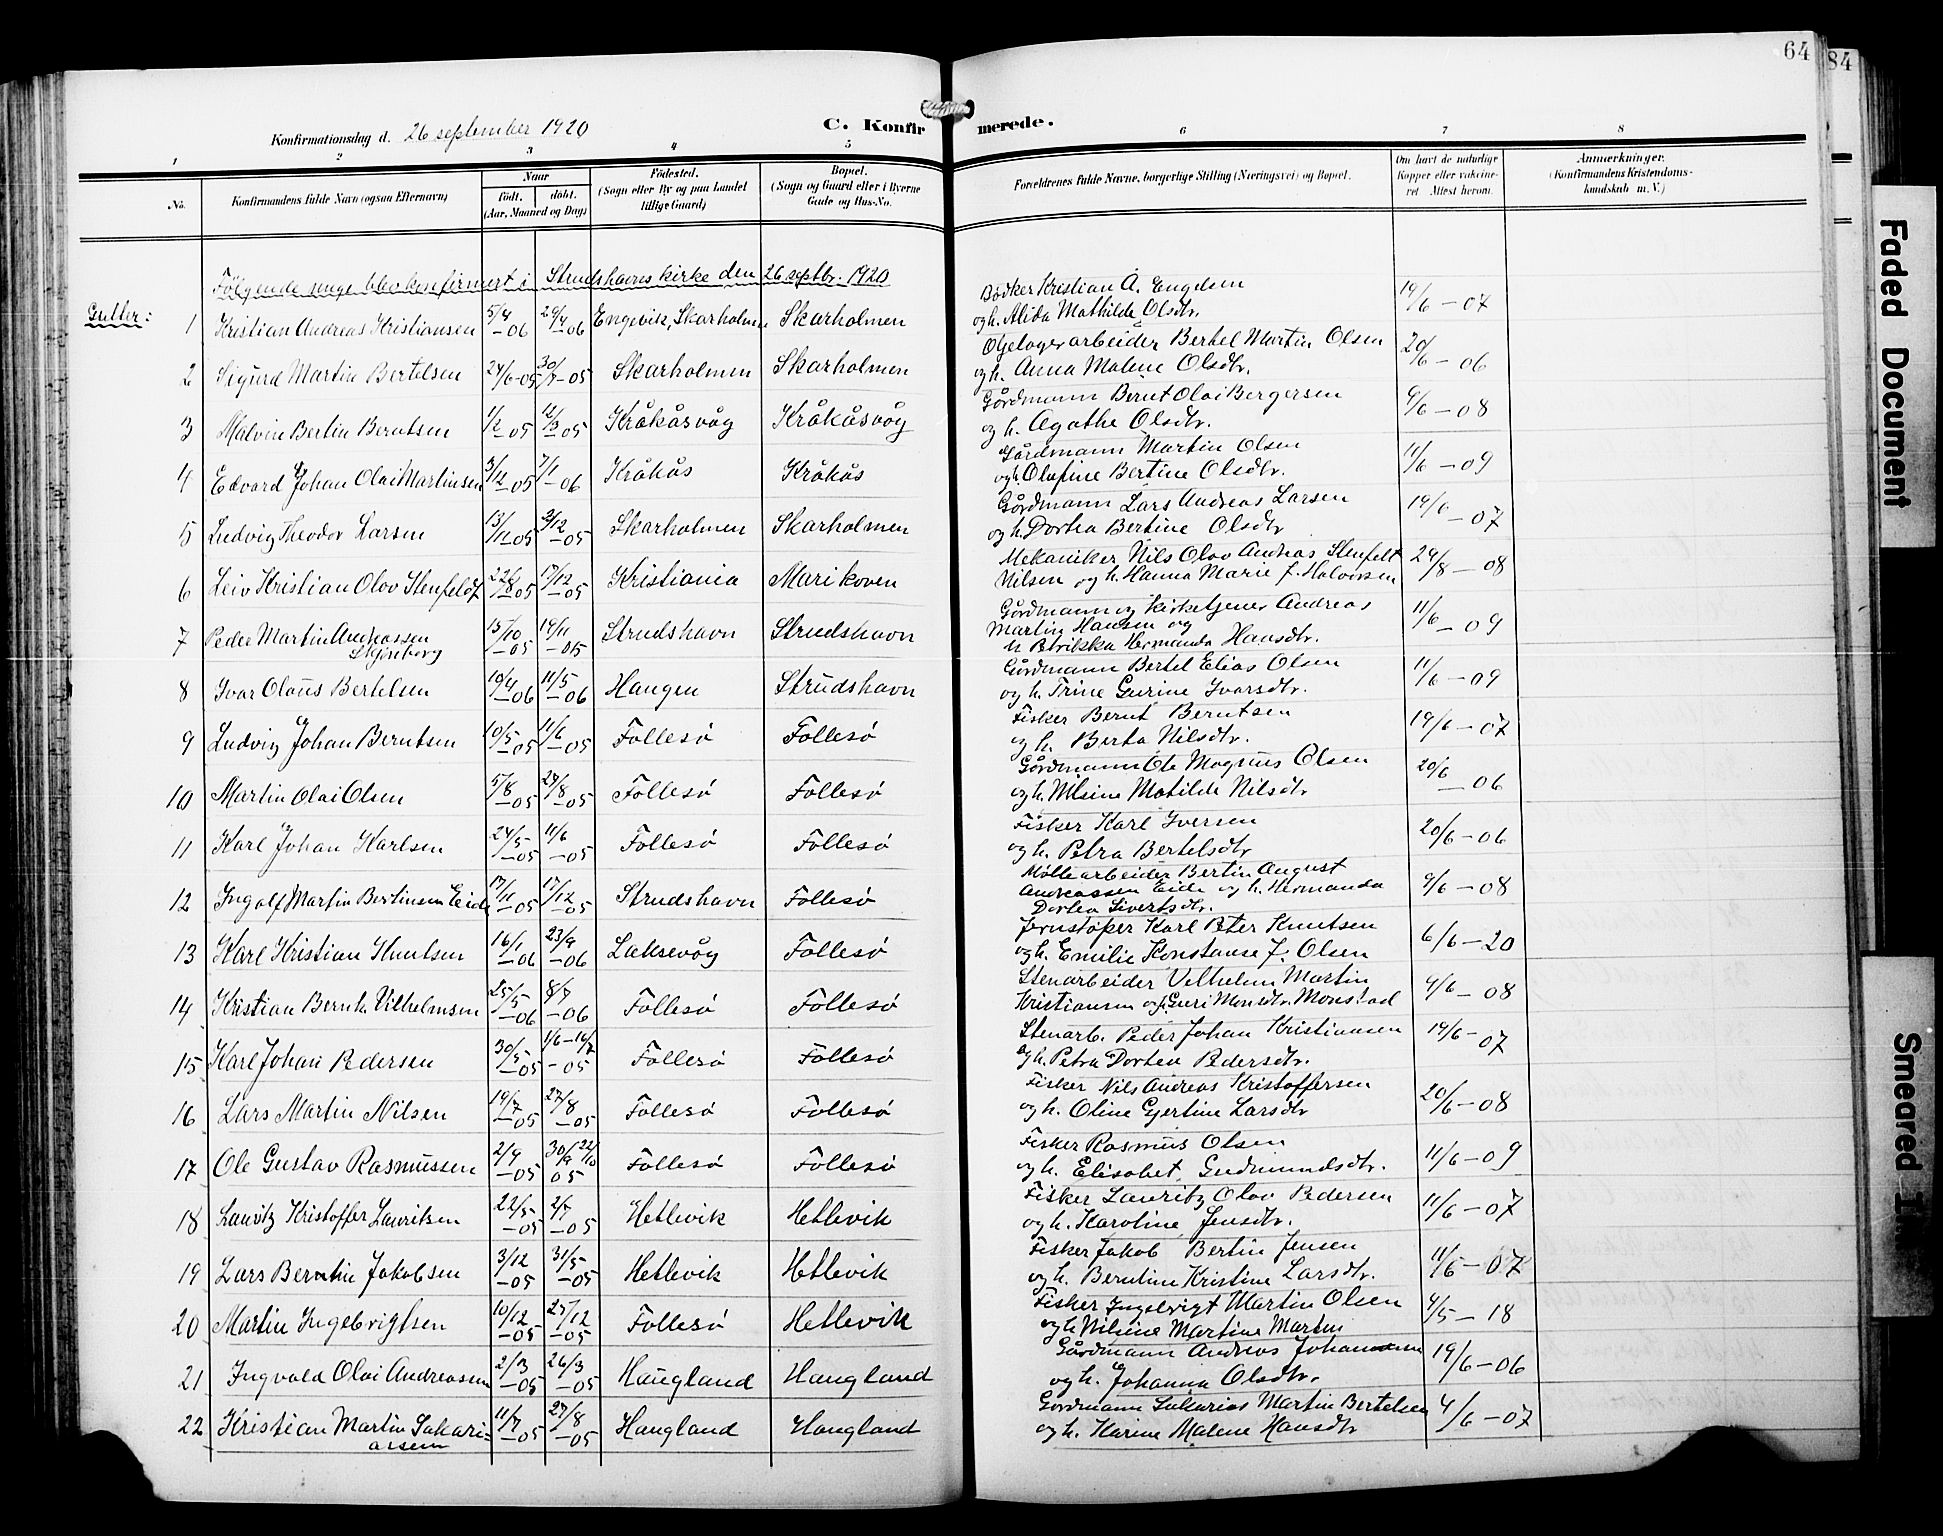 64
84
Konfirmationsdag d. 26 september 1920
C. Konfirmerede.
1 2 3 4 5 6 7 8
No.
Konfirmandens fulde Navn (ogsaa Efternavn)
Naar
født. døbt.
(Aar, Maaned og Dag)
Fødested.
(Sogn eller By og paa Landet tillige Gaard)
Bopæl.
(Sogn og Gaard eller i Byerne Gade og Hus-No.
Forældrenes fulde Navne, borgerlige Stilling (Næringsvei) og Bopæl.
Om havt de naturlige Kopper eller vakcineret. Attest herom.
Anmærkninger.
(Konfirmandens Kristendomskundskab m. V.)
Følgende unge blev konfirmert i Strudshavns kirke den 26 septbr. 1920
Gutter:
1 Kristian Andreas Kristiansen 5/4 –06 29/4 –06 Engevik, Skarholmen Skarholmen Bødker Kristian A. Engelsen og h. Alida Mathilde Olsdtr. 19/6 – 07
2 Sigurd Martin Bertelsen 24/6 –05 30/7 –05 Skarholmen Skarholmen Oljelagerarbeider Bertel Martin Olsen og h. Anna Malene Olsdtr. 20/6 – 06
3 Malvin Bertin Berntsen 1/2 –05 12/3 –05 Kråkåsvåg Kråkåsvåg Gårdmann Bernt Olai Bergersen og h. Agathe Olsdtr. 9/6 – 08
4 Edvard Johan Olai Martinsen 3/12 –05 7/1 –06 Kråkås Kråkås Gårdmann Martin Olsen og h. Olafine Bertine Olsdtr. 11/6 – 09
5 Ludvig Theodor Larsen 13/11 –05 3/12 –05 Skarholmen Skarholmen Gårdmann Lars Andreas Larsen og h. Dortea Bertine Olsdtr 19/6 – 07
6 Leiv Kristian Olov Stenfeldt 22/8 –05 17/12 –05 Kristiania Marikoven Mekaniker Nils Olov Andreas Stenfelt Nilsen og h. Hanna Marie f. Halvorsen 24/8 – 08
7 Peder Martin Andreassen Skjenborg 15/10 –05 19/11 –05 Strudshavn Strudshavn Gårdmann og kirketjener Andreas Martin Hansen og h. Hermanda Hansdtr. 11/6 – 09
8 Ivar Olaus Bertelsen 19/4 –06 11/5 –06 Haugen Strudshavn Gårdmann Bertel Elias Olsen og h. Trine Gurine Ivarsdtr. 11/6 – 09
9 Ludvig Johan Berntsen 10/5 –05 11/6 –05 Follesø Follesø Fisker Bernt Berntsen og h. Berta Nilsdtr. 19/6 – 07
10 Martin Olai Olsen 5/8 –05 29/8 –05 Follesø Follesø Gårdmann Ole Magnus Olsen og h. Nilsine Matilde Nilsdtr 20/6 – 06
11 Karl Johan Karlsen 24/5 –05 11/6 –05 Follesø Follesø Fisker Karl Iversen og h. Petra Bertelsdtr 20/6 – 06
12 Ingolf Martin Bertinsen Eide 17/11 –05 17/12 –05 Strudshavn Follesø Møllearbeider Bertin August Andreassen Eide og h. Hermanda Dortea Sivertsdtr. 9/6 – 08
13 Karl Kristian Knutsen 16/1 –06 23/9 –06 Laksevåg Follesø Jernstøper Karl Peter Knutsen og h. Emilie Konstanse f. Olsen 6/6 – 20
14 Kristian Bernh. Vilhelmsen 25/5 –06 8/7 –06 Follesø Follesø Stenarbeider Vilhelm Martin Kristiansen og h. Guri Monsdtr. Monstad 9/6 – 08
15 Karl Johan Pedersen 30/5 –05 1/6–16/7 –05 Follesø Follesø Stenarb. Peder Johan Kristiansen og h. Petra Dortea Pedersdtr. 19/6 – 07
16 Lars Martin Nilsen 19/7 –05 27/8 –05 Follesø Follesø Fisker Nils Andreas Kristoffersen og h. Oline Gjertine Larsdtr 20/6 – 08
17 Ole Gustav Rasmussen 2/9 –05 30/9 22/10 05 Follesø Follesø Fisker Rasmus Olsen og h. Elisabet Gudmundsdtr. 11/6 – 09
18 Lauritz Kristoffer Lauritsen 22/5 –05 2/7 –05 Hetlevik Hetlevik Fisker Lauritz Olov Pedersen og h. Karoline Jensdtr. 11/6 – 07
19 Lars Berntin Jakobsen 3/12 –05 31/5 –05 Hetlevik Hetlevik Fisker Jakob Bertin Jensen og h. Berntine Kristine Larsdtr. 11/6 – 07
20 Martin Ingebrigtsen 10/12 –05 25/12 –05 Follesø Hetlevik Fisker Ingebrigt Martin Olsen og h. Nilsine Martine Marten 4/5 – 18
21 Ingvald Olai Andreasen 2/3 –05 26/3 –05 Haugland Haugland Gårdmann Andreas Johannesen og h. Johanna Olsdtr. 19/6 – 06
22 Kristian Martin Sakariassen 11/7 –05 27/8 –05 Haugland Haugland Gårdmann Sakarias Martin Bertelsen og h. Karine Malene Hansdtr 4/6 – 07
Faded Document
Smeared